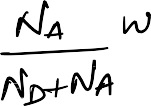 N_A / (N_D + N_A) W